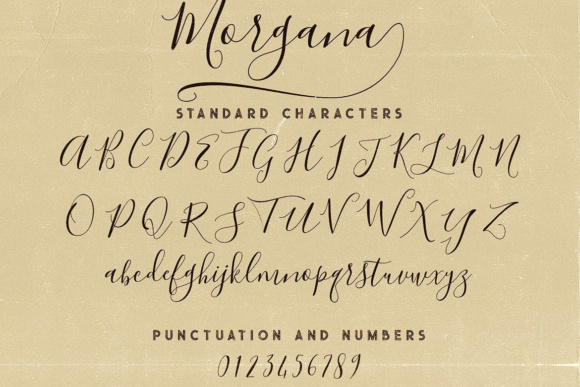 Morgana
STANDARD CHARACTERS
ABCDEFGHIJKLMN
OPQRSTUVWXYZ
abcdefghijklmnopqrstuvwxyz
PUNCTUATION AND NUMBERS
0123456789